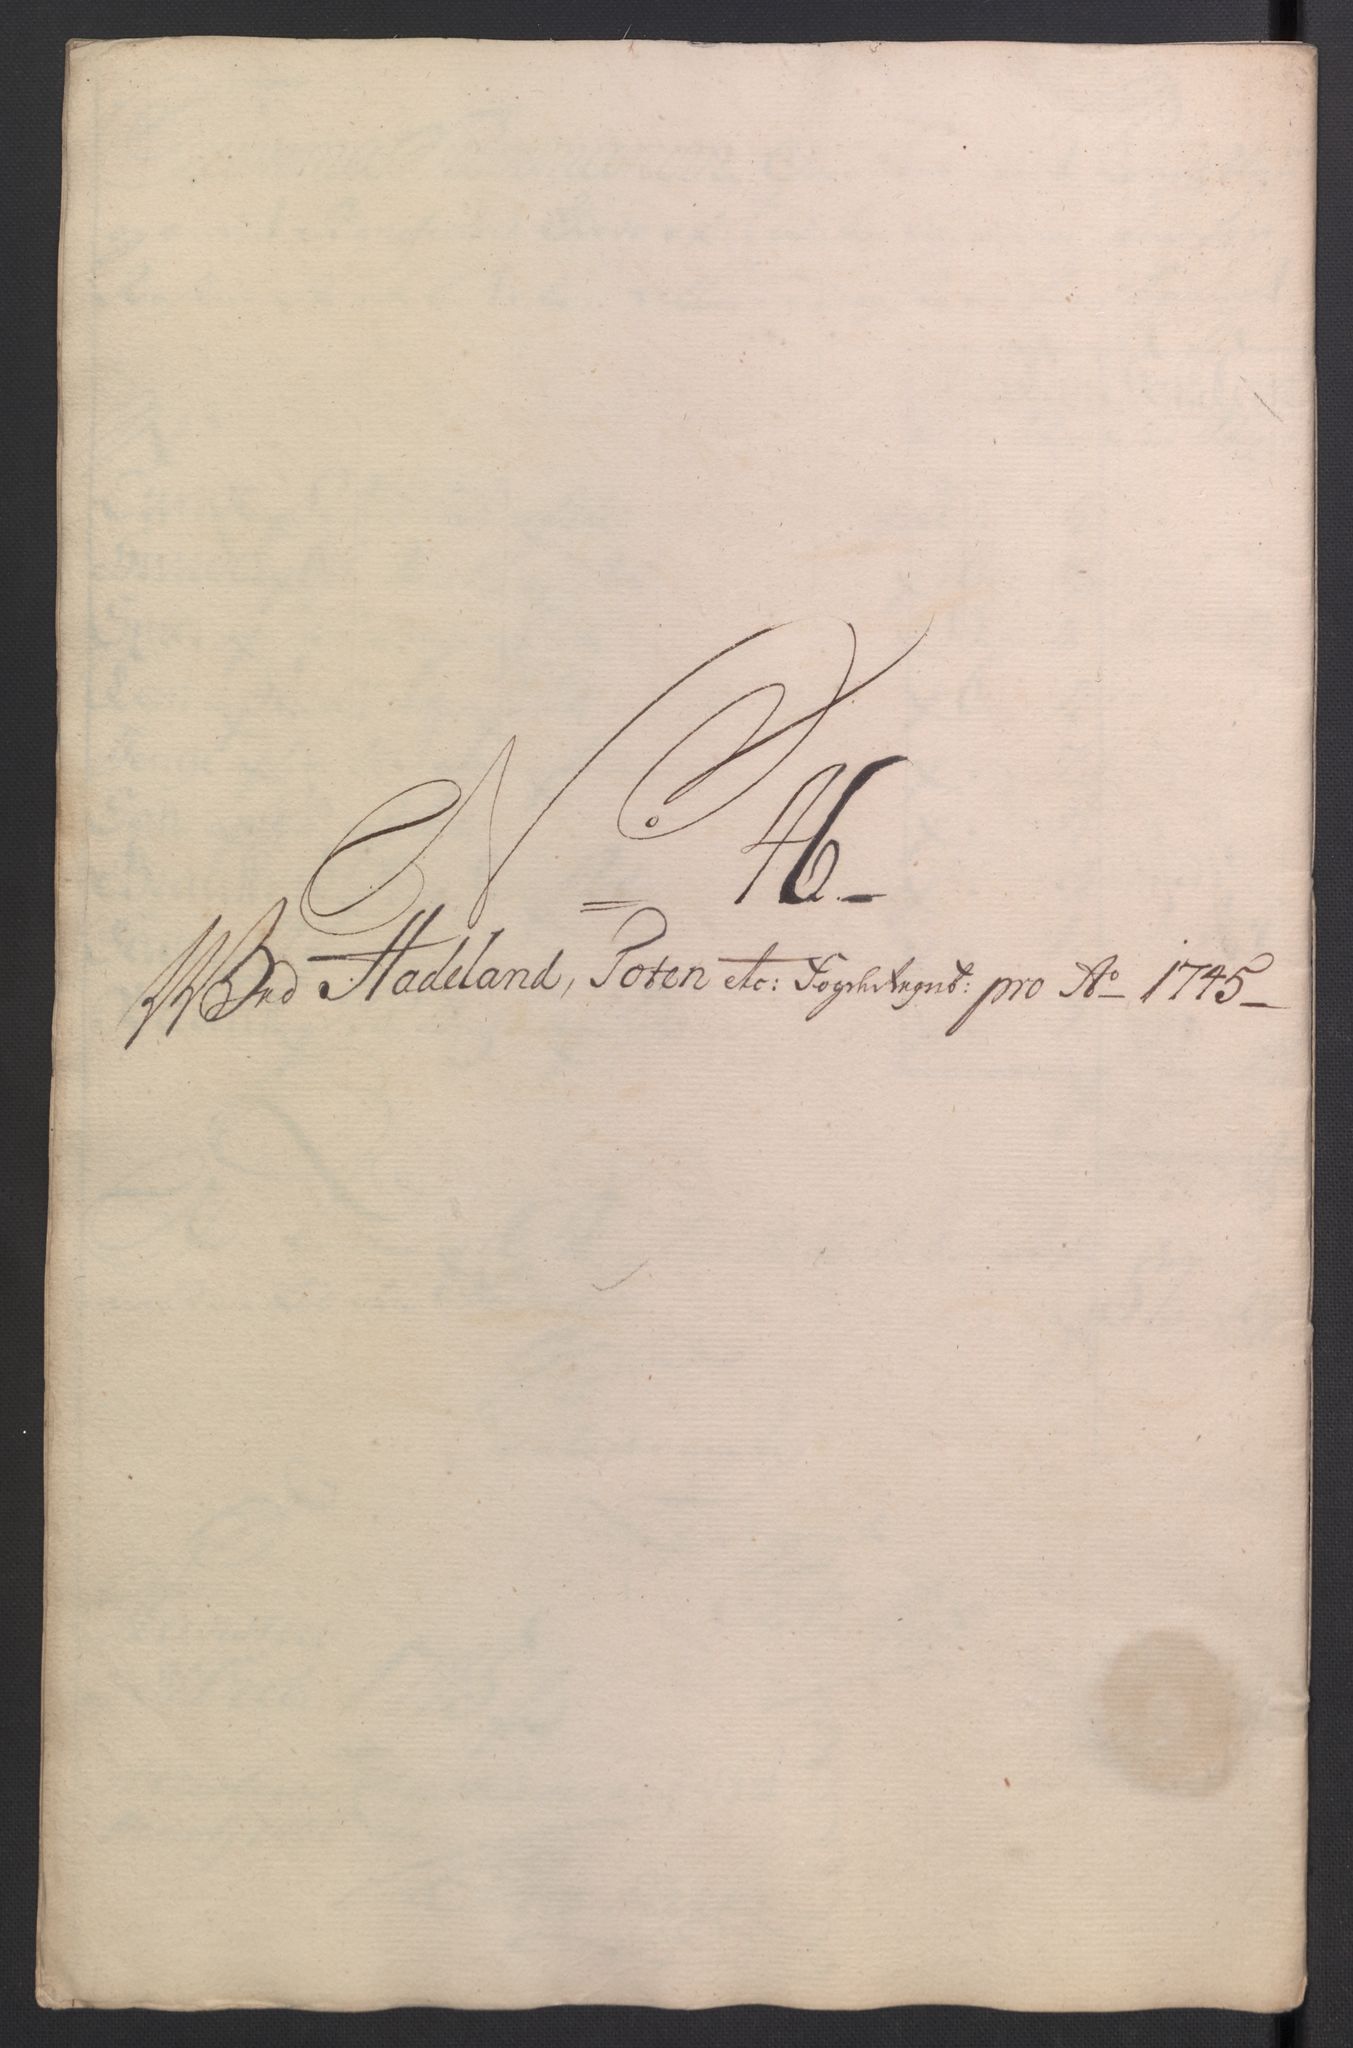 No 46.
Ved Hadeland, Toten etc: Fogd. Regnsk: pro Ao 1745